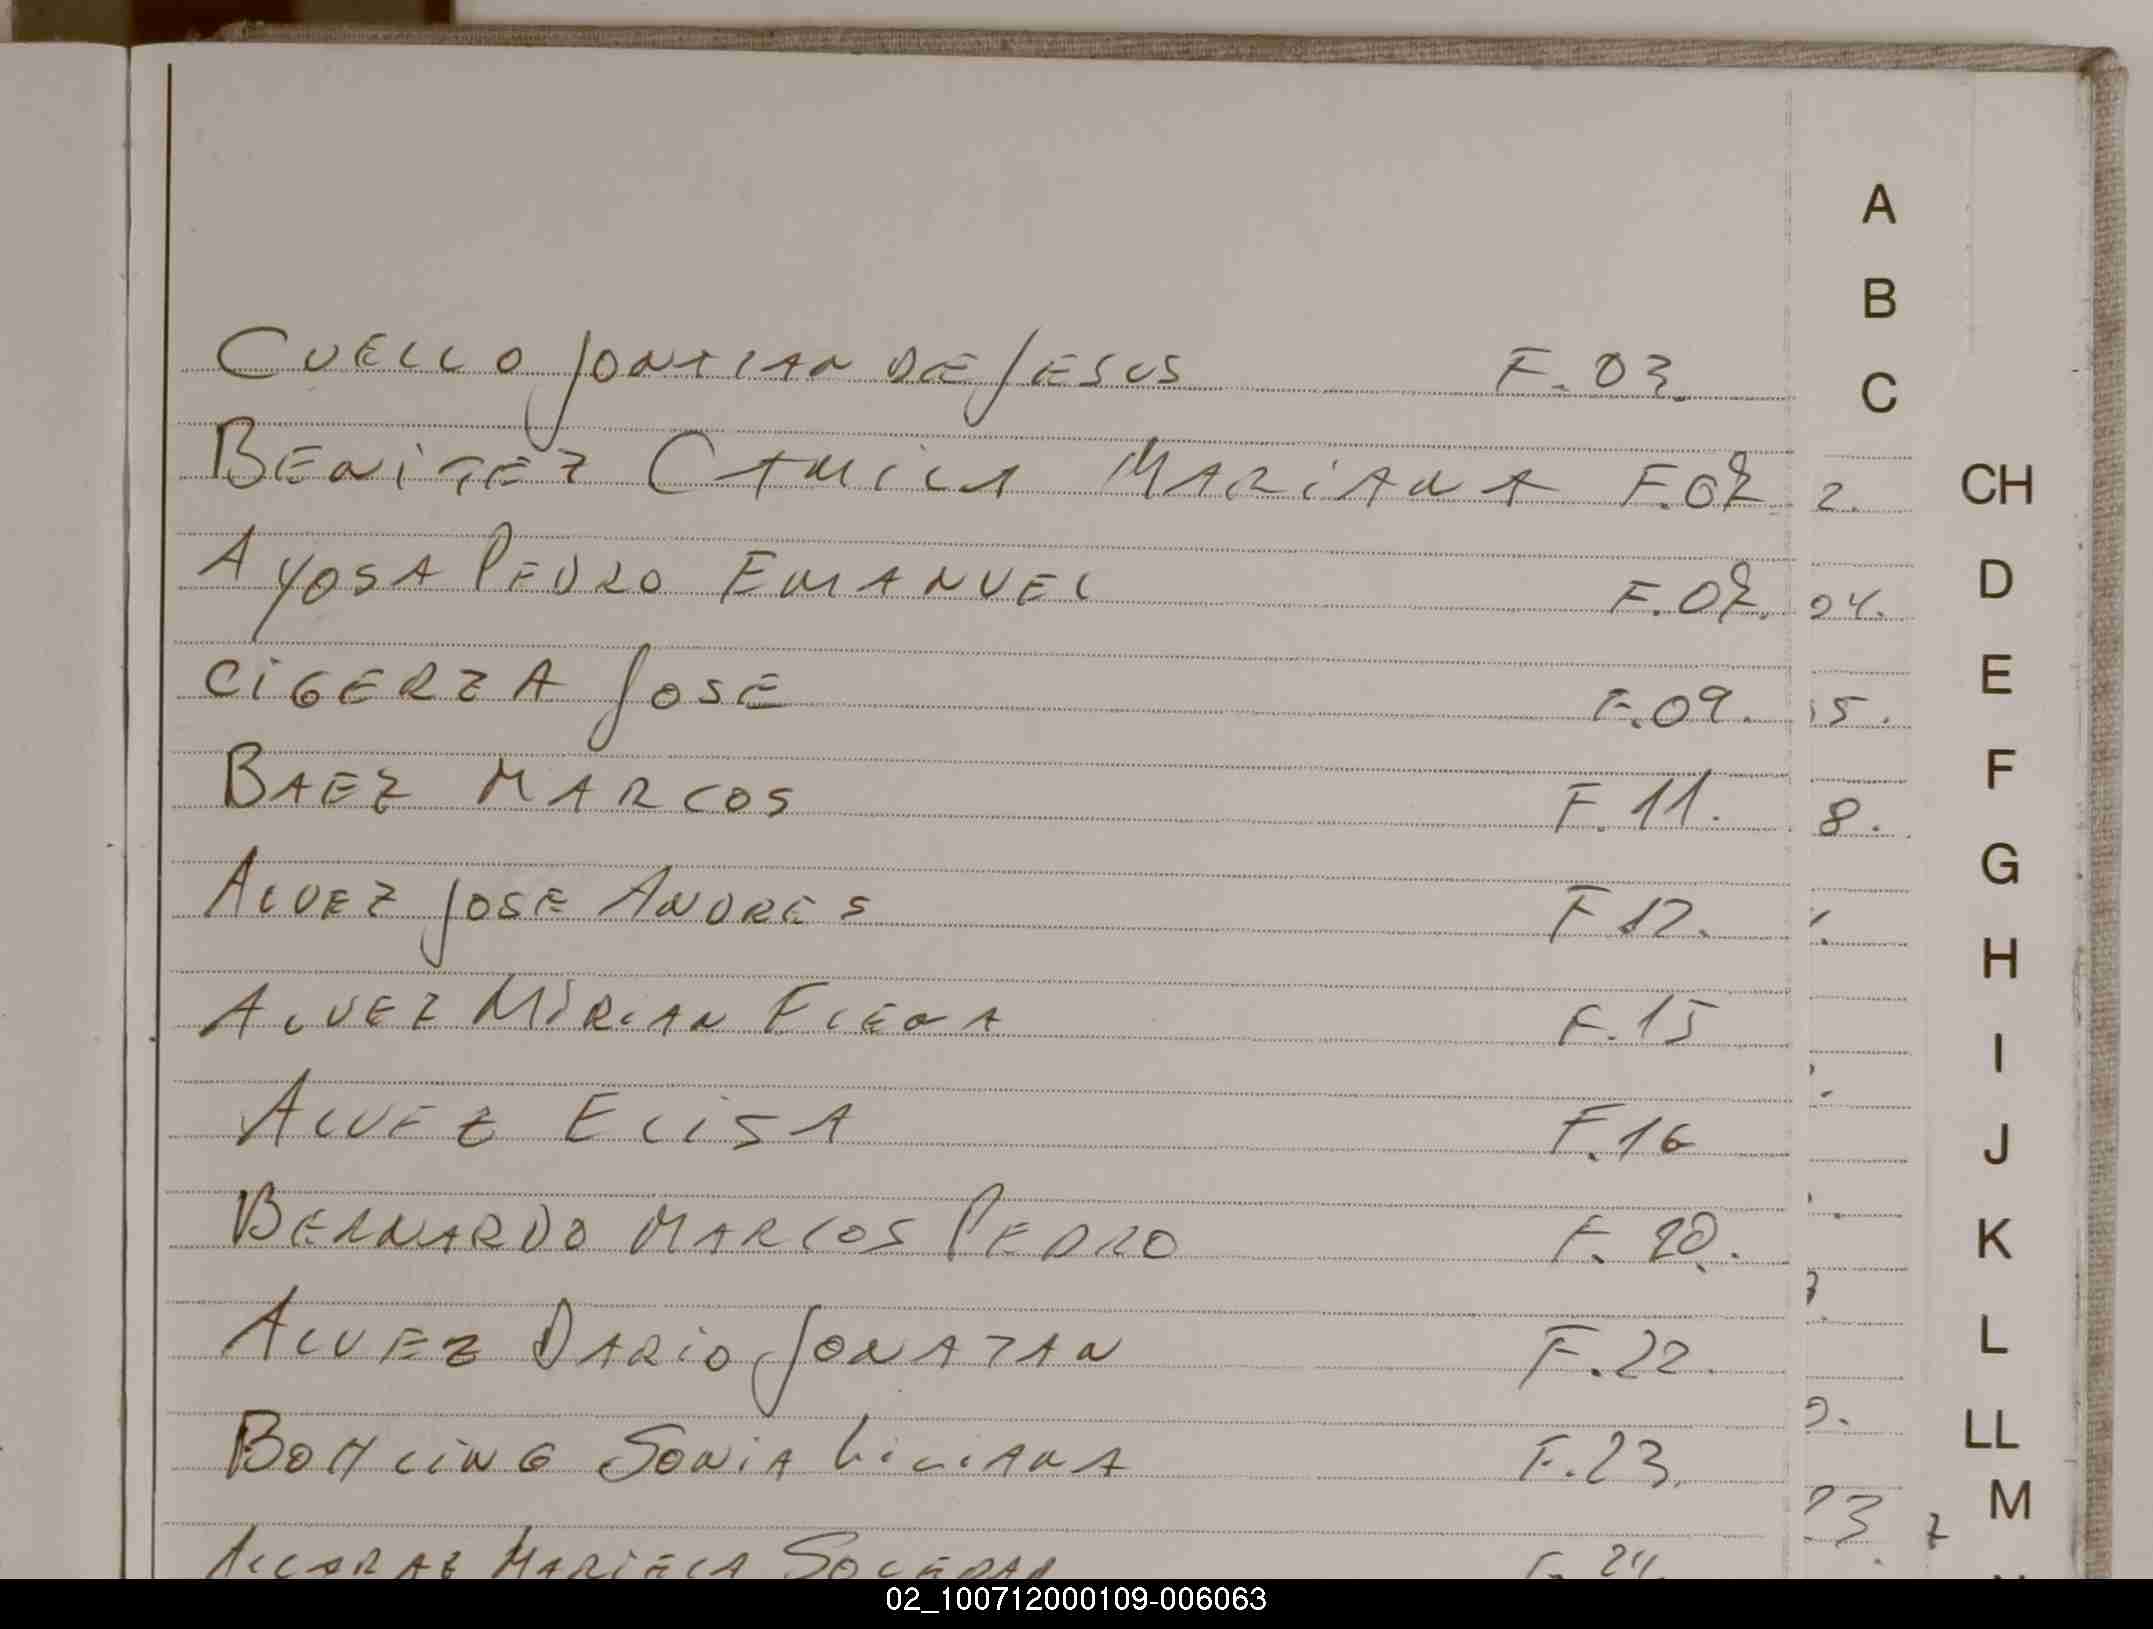 A
B
CUELLO JONATAN DE JESUS F. 03.
C
BENITEZ CAMILA MARIANA F.07 2.
CH
AYOSA PEDRO EMANUEL F.07. 04.
D
CIGERZA JOSE F.09. 5.
E
BAEZ MARCOS F. 11. 8.
F
ALVEZ JOSE ANDRES F 12.
G
H
ALVEZ MIRIAN ELEGA F. 15
I
ALVEZ ELISA F.16
J
BERNARDO MARCOS PEDRO F. 20.
K
ALVEZ DARIO JONATAN F.22.
L
BOHLING SONIA LILIANA F.23.
LL
M
ALCARAZ MARIELA SOLEDAD F. 24
02_100712000109-006063